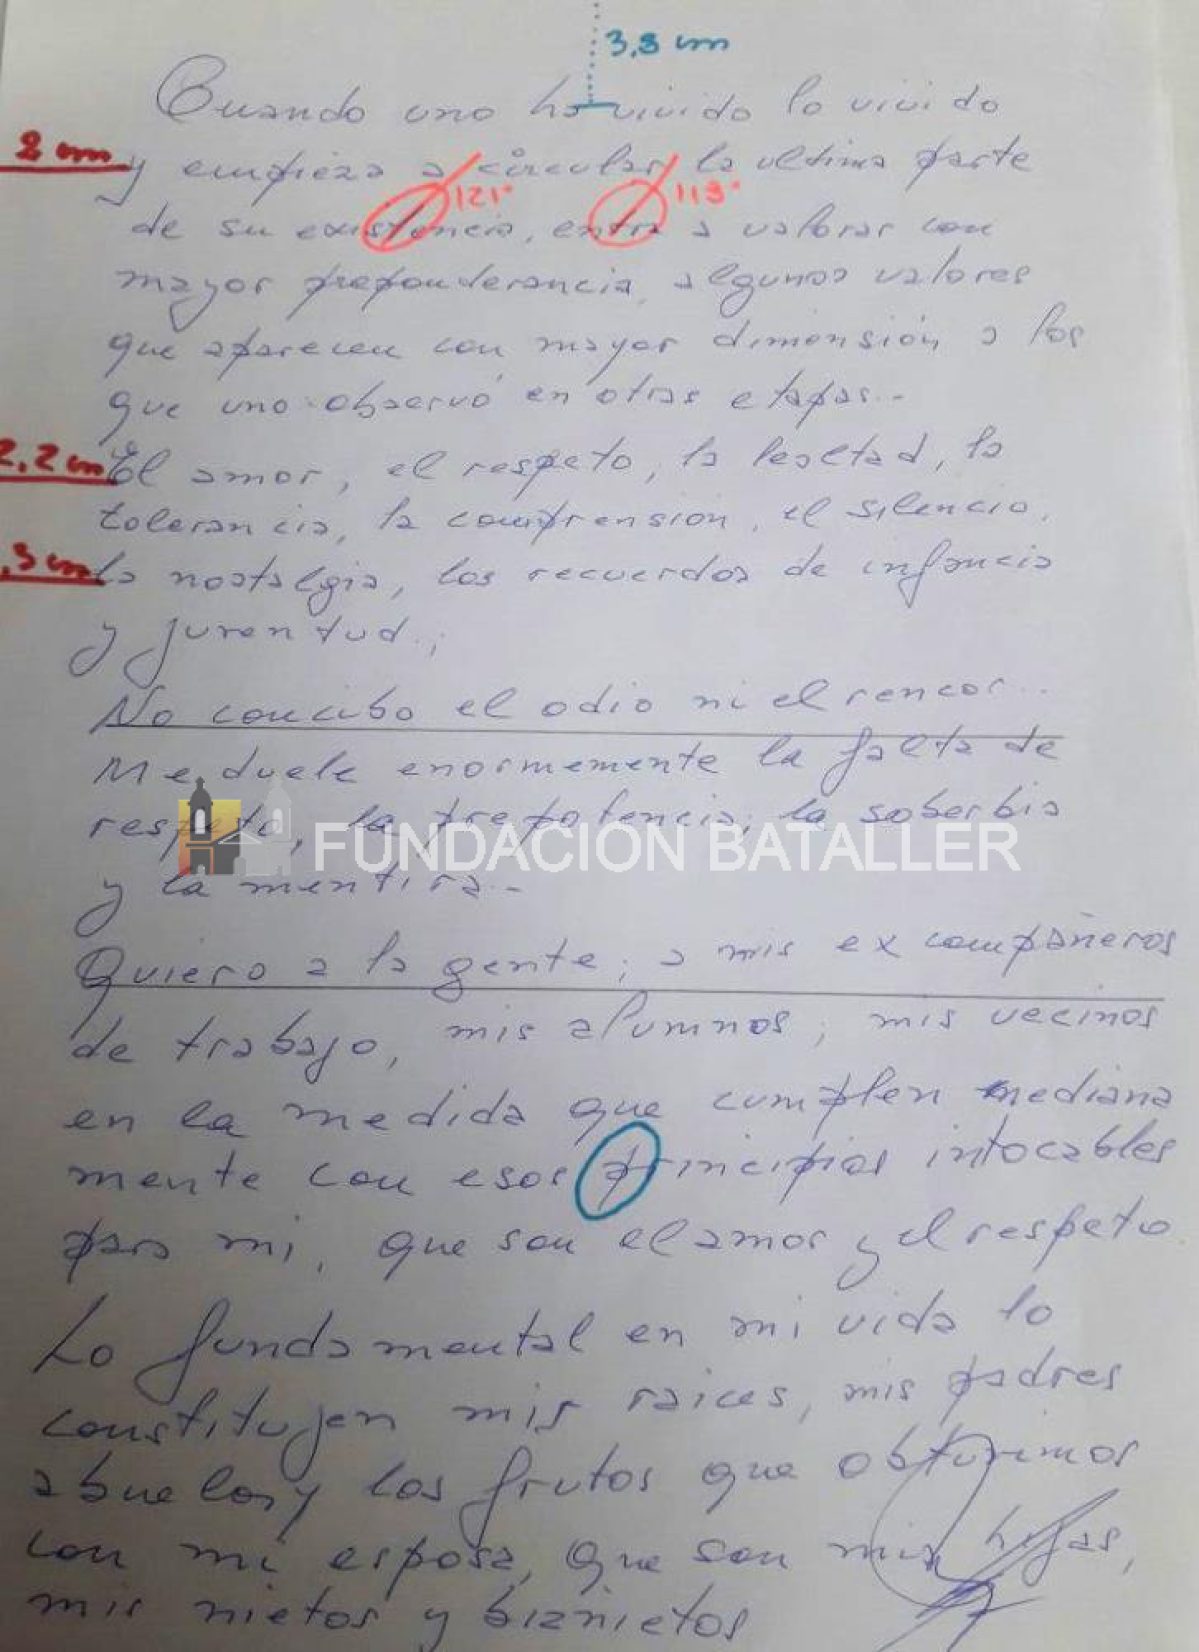 3,8 cm
Cuando uno ha vivido lo vivido
2 cm
y empieza a circular la ultima parte
121°
113°
de su existencia, entra a valorar con
mayor preponderancia, algunos valores
que aparecen con mayor dimensión a los
que uno observó en otras etapas.-
2,2 cm
El amor, el respeto, la lealtad, la
tolerancia, la comprensión, el silencio,
,3 cm
la nostalgia, los recuerdos de infancia
y juventud.;
No concibo el odio ni el rencor...
Me duele enormemente la falta de
respeto, la prepotencia; la soberbia
FUNDACION BATALLER
y la mentira.-
Quiero a la gente; a mis ex compañeros
de trabajo, mis alumnos; mis vecinos
en la medida que cumplen mediana
mente con esos principios intocables
para mi, que son el amor y el respeto
Lo fundamental en mi vida lo
constituyen mis raices, mis padres
abuelos y los frutos que obtuvimos
con mi esposa, que son mis hijas,
mis nietos y biznietos